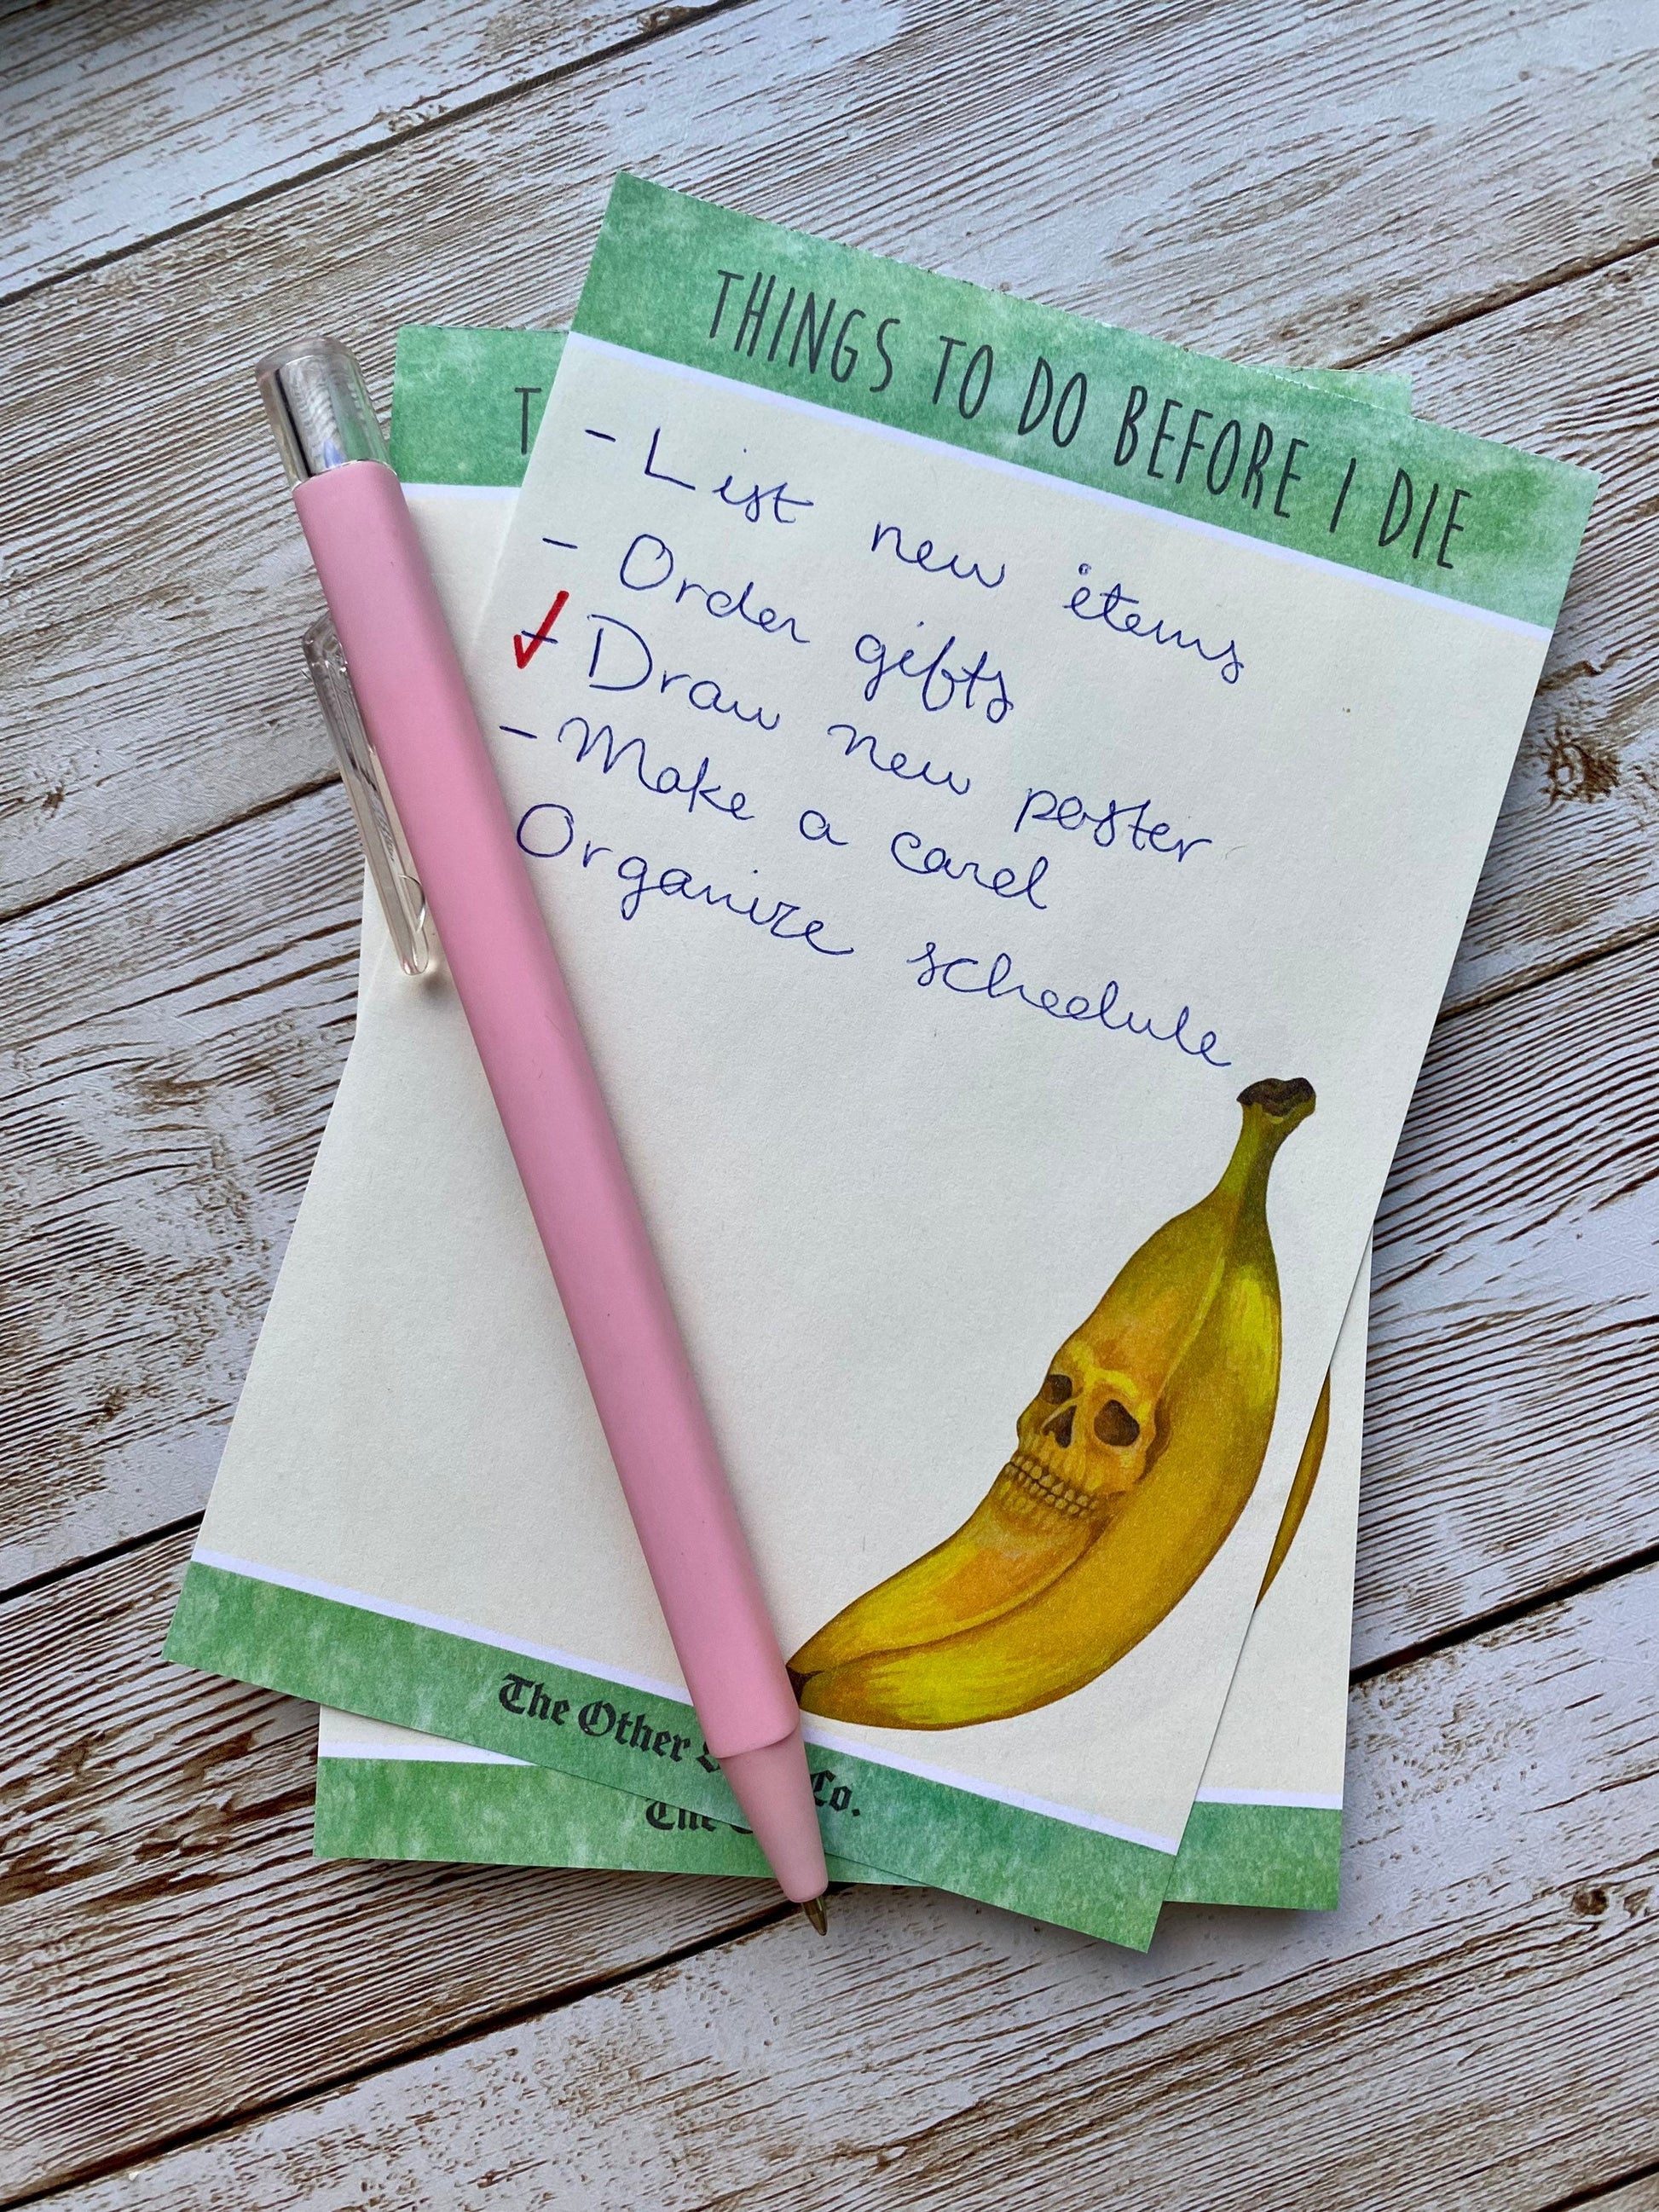 THINGS TO DO BEFORE I DIE
T
- List new items
- Order gifts
✓- Draw new poster
- Make a card
Organize schedule
The Other Co.
The